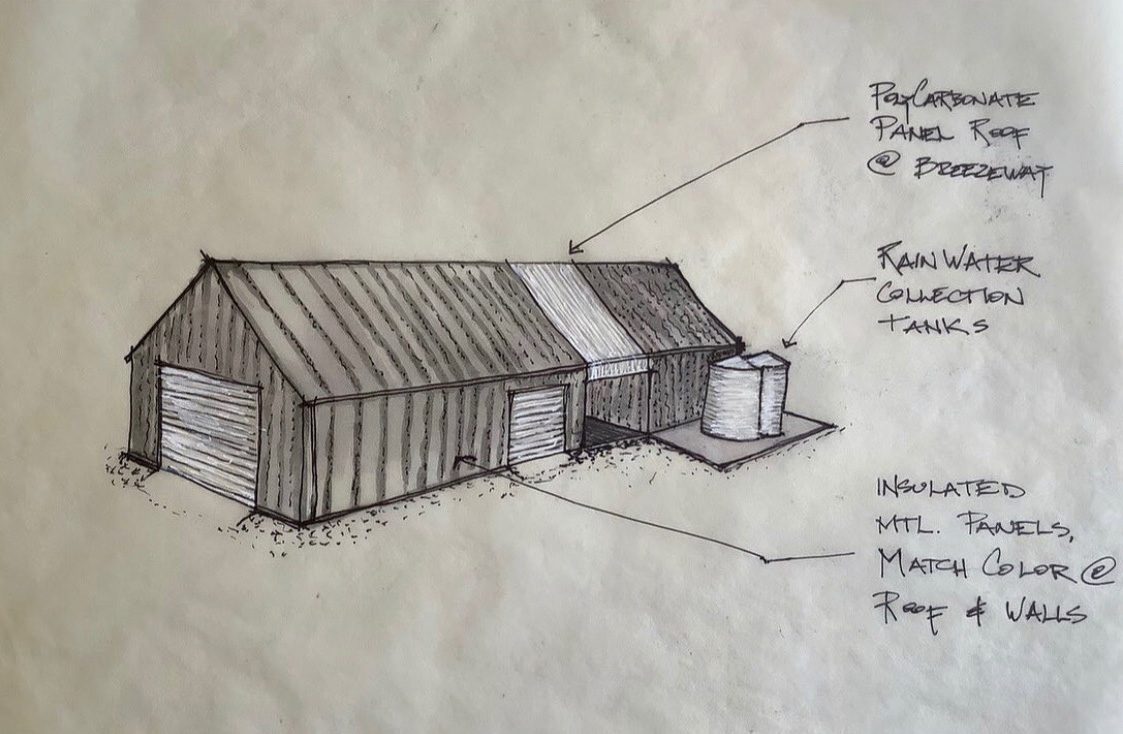 PolyCarbonate
Panel Roof
@ Breezeway
Rain Water
Collection
Tanks
Insulated
Mtl. Panels,
Match Color @
Roof & Walls